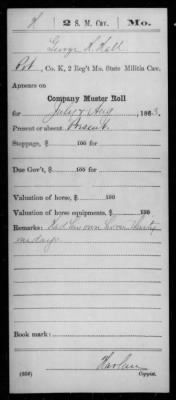 H 2 S. M. Cav. Mo.
George H. Hall
Pvt, Co. K, 2 Reg't Mo. State Militia Cav.
Appears on
Company Muster Roll
for July & Aug, 1863.
Present or absent Present.
Stoppage, $ 100 for
Due Gov't, $ 100 for
Valuation of horse, $ 100
Valuation of horse equipments, $ 100
Remarks: Had his own horse
one days
Book mark:
Harlan
(656) Copyist.